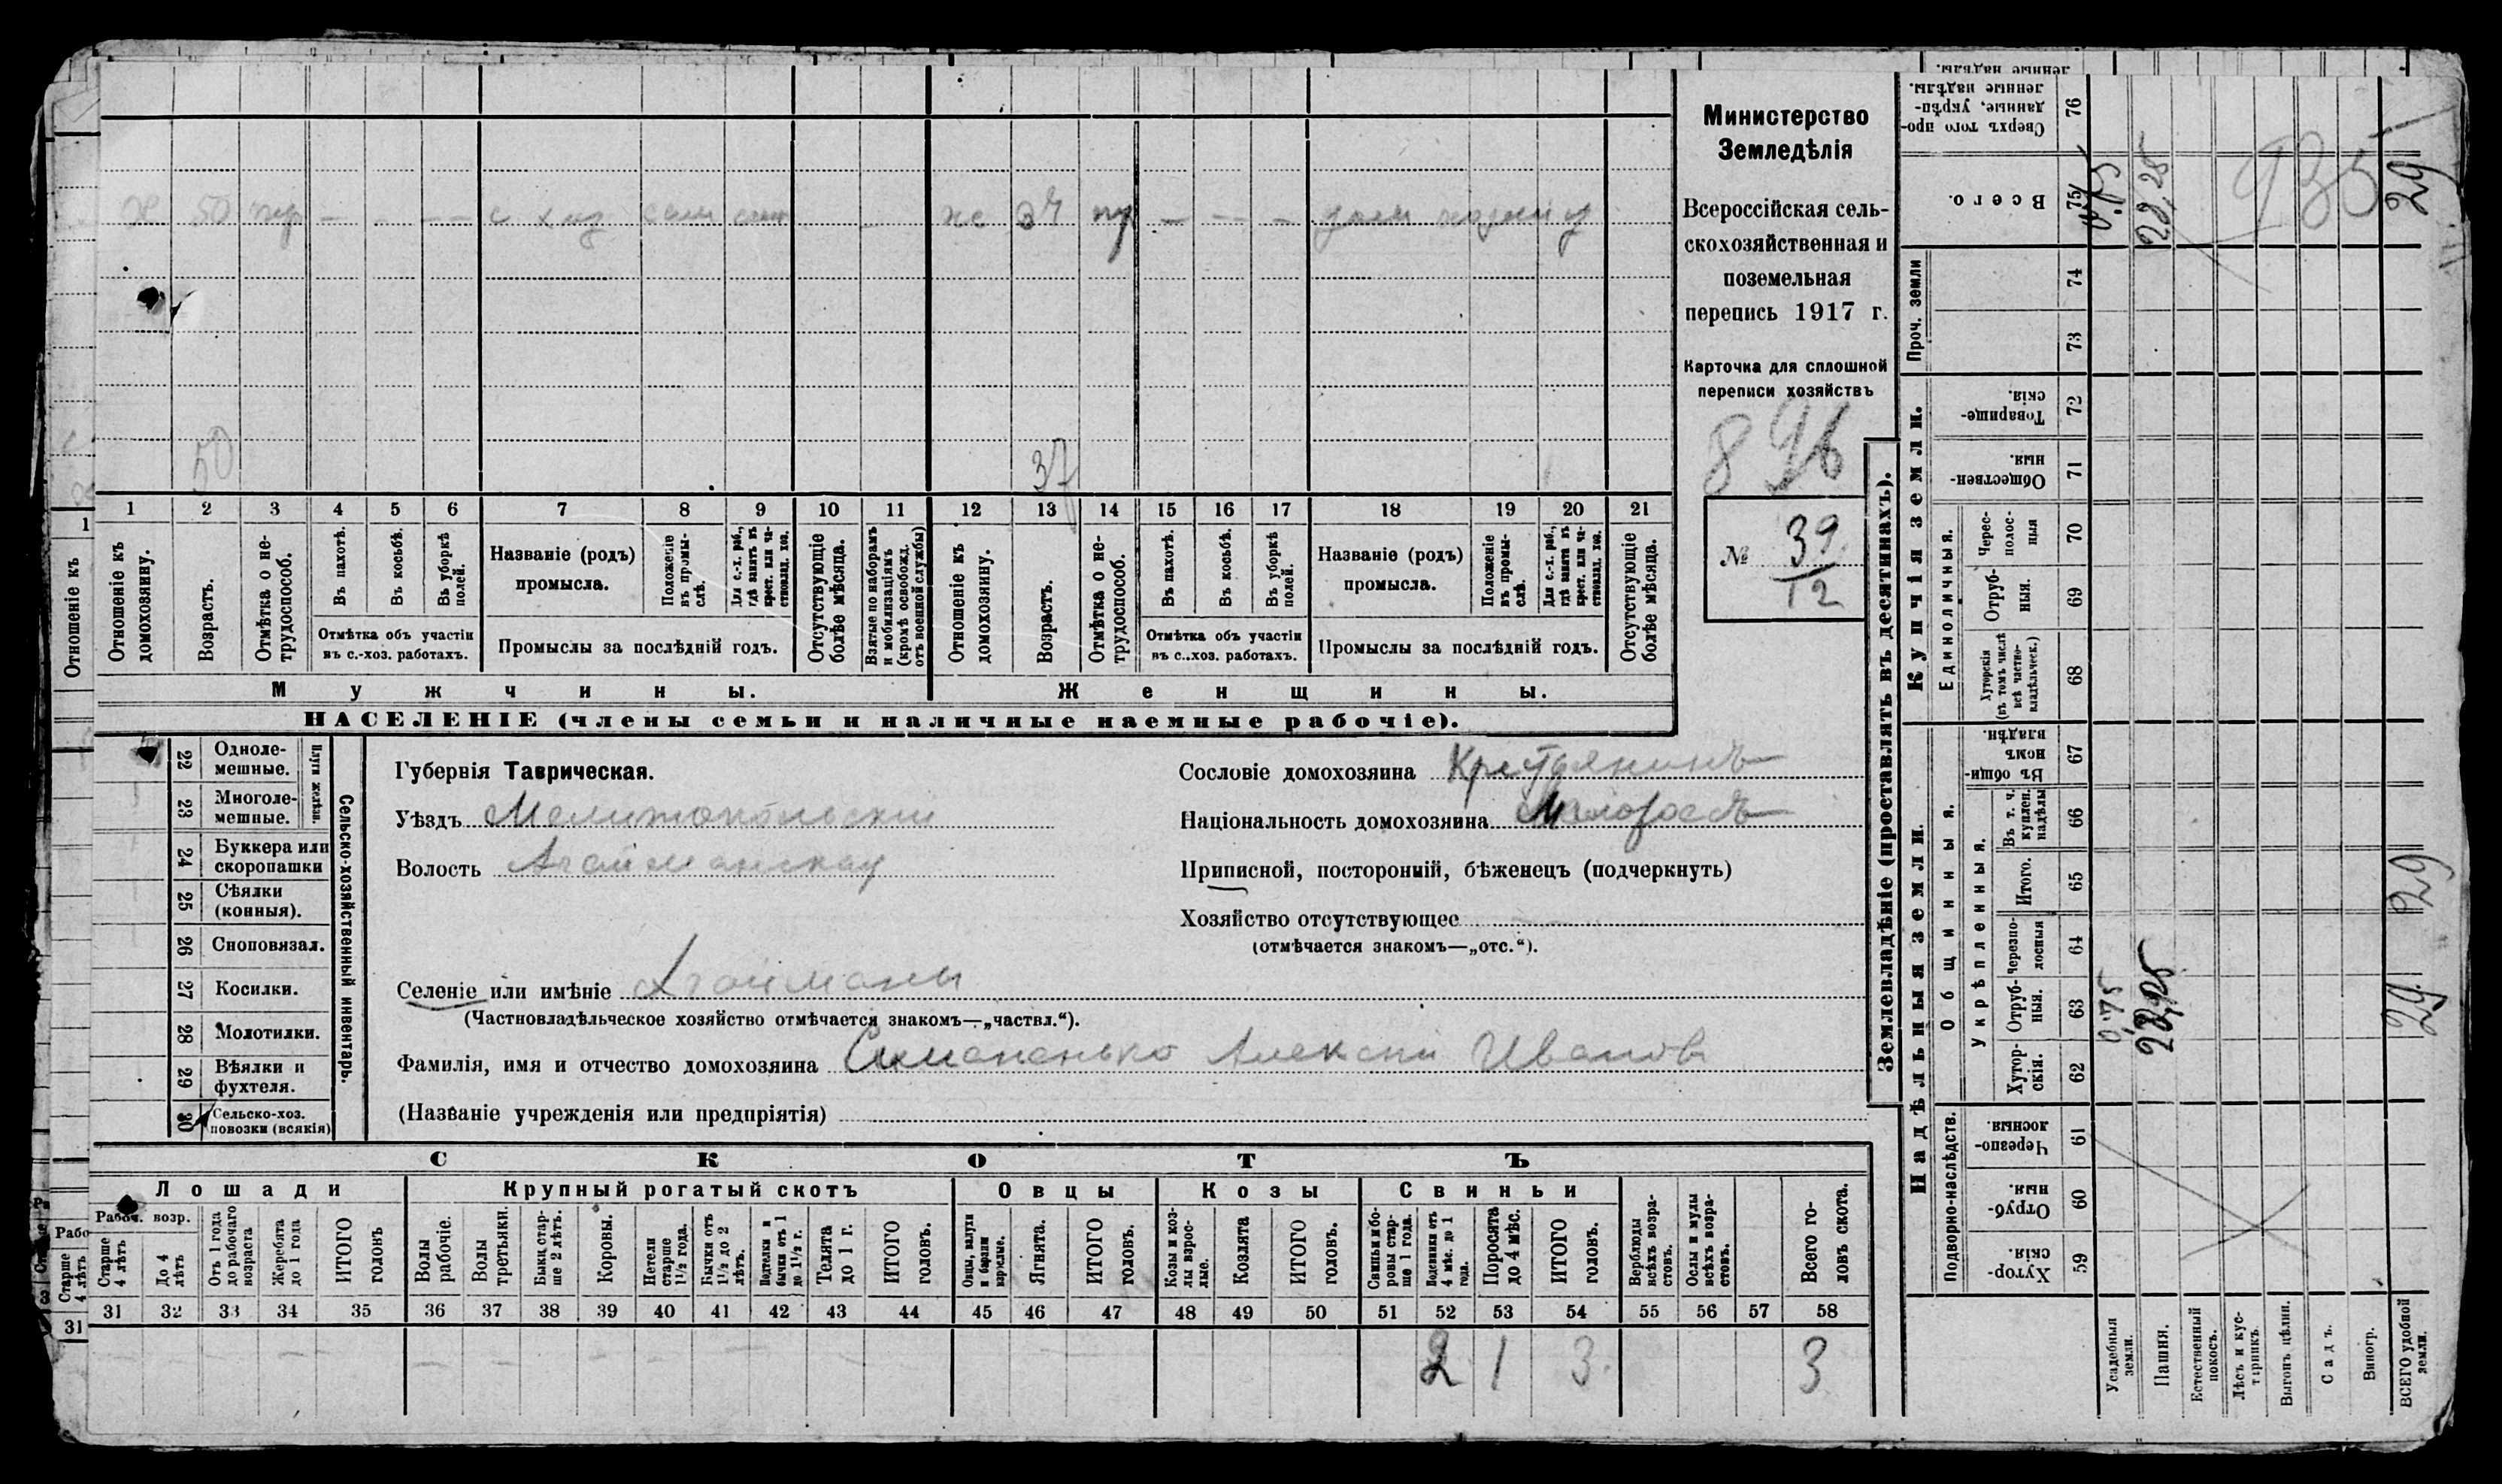 Министерство
Земледѣлія
Всероссійская сель-
скохозяйственная и
поземельная
перепись 1917 г.
Карточка для сплошной
переписи хозяйствъ
896
№ 39
12
50 37
1 2 3 4 5 6 7 8 9 10 11 12 13 14 15 16 17 18 19 20 21
Отношеніе къ домохозяину.
Возрастъ.
Отмѣтка о не-трудоспособ.
Въ пахотѣ.
Въ косьбѣ.
Въ уборкѣ полей.
Отмѣтка объ участіи
въ с.-хоз. работахъ.
Названіе (родъ)
промысла.
Положеніе въ промы-слѣ.
Для с.-х. раб., гдѣ занятъ въ крест. или ча-стновлад. хоз.
Промыслы за послѣдній годъ.
Отсутствующіе болѣе мѣсяца.
Взятые по наборамъ и мобилизаціямъ (кромѣ освобожд. отъ военной службы)
Отношеніе къ домохозяину.
Возрастъ.
Отмѣтка о не-трудоспособ.
Въ пахотѣ.
Въ косьбѣ.
Въ уборкѣ полей.
Отмѣтка объ участіи
въ с.-хоз. работахъ.
Названіе (родъ)
промысла.
Положеніе въ промы-слѣ.
Для с.-х. раб., гдѣ занятъ въ крест. или ча-стновлад. хоз.
Промыслы за послѣдній годъ.
Отсутствующіе болѣе мѣсяца.
Мужчины. Женщины.
НАСЕЛЕНІЕ (члены семьи и наличные наемные рабочіе).
Сельско-хозяйственный инвентарь.
Плуги желѣзн.
22 Одноле-
мешные.
23 Многоле-
мешные.
24 Буккера или
скоропашки
25 Сѣялки
(конныя).
26 Сноповязал.
27 Косилки.
28 Молотилки.
29 Вѣялки и
фухтеля.
30 Сельско-хоз.
повозки (всякія)
Губернія Таврическая.
Уѣздъ Мелитопольскій
Волость Агайманская
Сословіе домохозяина Крестьянинъ
Національность домохозяина Малороссъ
Приписной, посторонній, бѣженецъ (подчеркнуть)
Хозяйство отсутствующее
(отмѣчается знакомъ—„отс.“).
Селеніе или имѣніе Агайманы
(Частновладѣльческое хозяйство отмѣчается знакомъ—„частвл.“).
Фамилія, имя и отчество домохозяина Симоненько Алексей Иванов
(Названіе учрежденія или предпріятія)
СКОТЪ
Лошади Крупный рогатый скотъ Овцы Козы Свиньи
Рабоч. возр.
Старше 4 лѣтъ
До 4 лѣтъ
Отъ 1 года до рабочаго возраста
Жеребята до 1 года
ИТОГО головъ
Волы рабочіе.
Волы третьяки.
Быки стар-ше 2 лѣтъ.
Коровы.
Нетели старше 1½ года.
Бычки отъ 1½ до 2 лѣтъ.
Подтелки и бычки отъ 1 до 1½ г.
Телята до 1 г.
ИТОГО головъ.
Овцы, валухи и бараны взрослые.
Ягнята.
ИТОГО головъ.
Козы и коз-лы взрос-лые.
Козлята
ИТОГО головъ.
Свиньи и бо-ровы стар-ше 1 года.
Подсвинки отъ 4 мѣс. до 1 года.
Поросята до 4 мѣс.
ИТОГО головъ.
Верблюды всѣхъ возра-стовъ.
Ослы и мулы всѣхъ возра-стовъ.
Всего го-ловъ скота.
31 32 33 34 35 36 37 38 39 40 41 42 43 44 45 46 47 48 49 50 51 52 53 54 55 56 57 58
2 1 3 3
Землевладѣніе (проставлять въ десятинахъ).
Надѣльныя земли.
Купчія земли.
Проч. земли
Сверхъ того про-данные, укрѣп-ленные надѣлы. 76
Всего. 75
74
73
Товарище-скія. 72
Обществен-ныя. 71
Единоличныя.
Черес-полос-ныя 70
Отруб-ныя. 69
Хуторскія (въ томъ числѣ всѣ частно-владѣльческ.) 68
Общинныя.
Въ общи-номъ владѣн. 67
Укрѣпленныя.
Въ т. ч. куплен. надѣлы 66
Итого. 65
Черезпо-лосныя 64
Отруб-ныя. 63
Хутор-скія. 62
Подворно-наслѣдств.
Черезпо-лосныя. 61
Отруб-ныя. 60
Хутор-скія. 59
Усадебныя земли.
Пашня.
Естественный покосъ.
Лѣсъ и кус-тарникъ.
Выгонъ цѣлин.
Садъ.
Виногр.
ВСЕГО удобной земли.
0,75
28,25
935
29
29
0,75
28,25
29